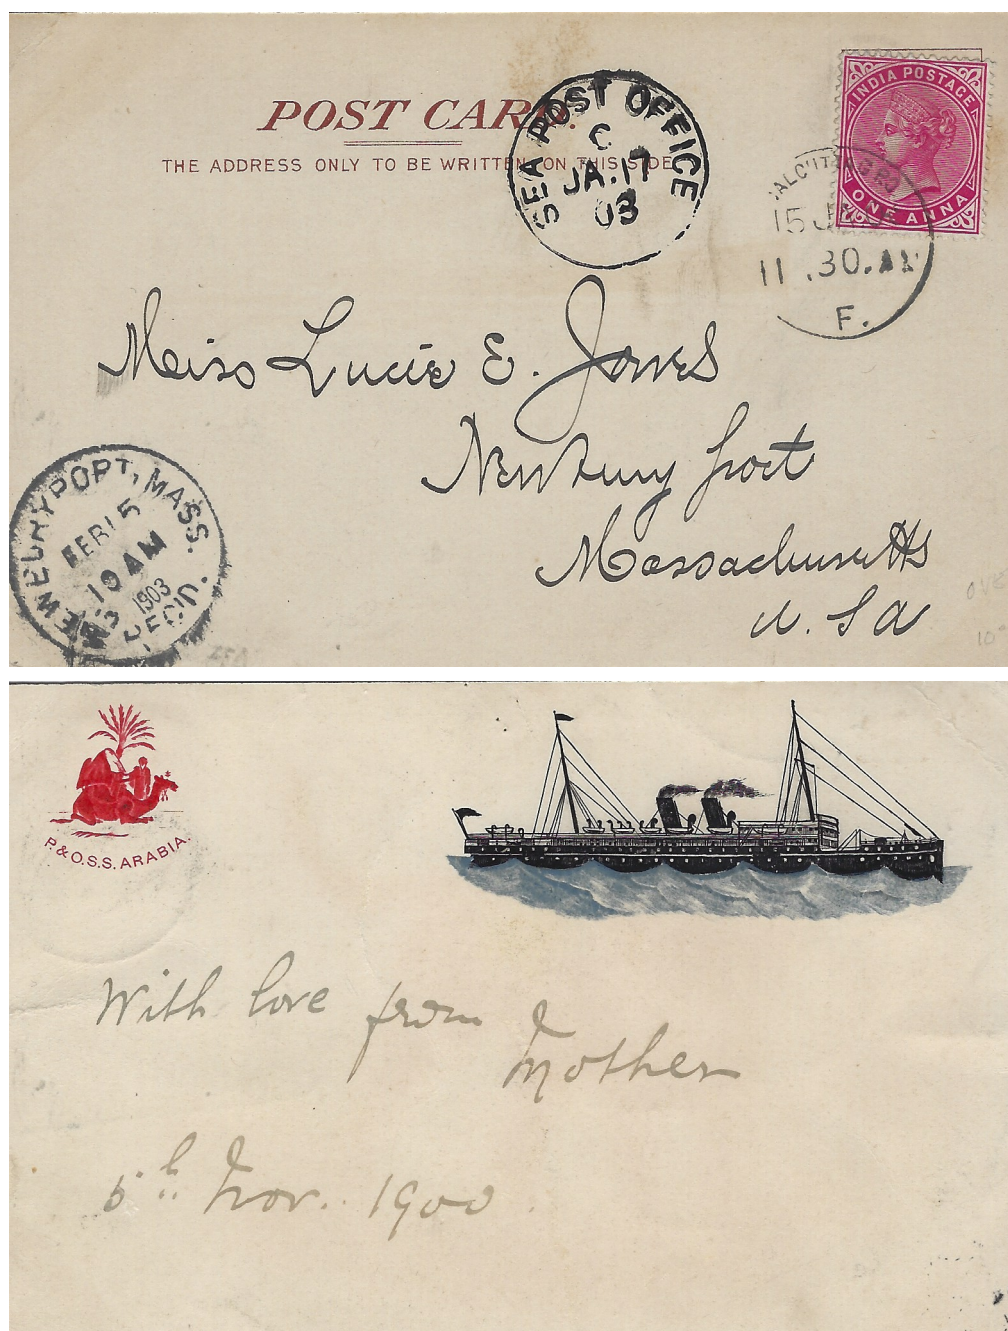 POST CARD.
THE ADDRESS ONLY TO BE WRITTEN ON THIS SIDE
SEA POST OFFICE
C
JA.17
03
INDIA POSTAGE
ONE ANNA
15 J
11.30.AM
F.
Miss Lucie E. Jones
Newbury port
Massachusetts
U. S A
NEWBURYPORT, MASS.
FEB 15
10 AM
1903
REC'D.
OVE
P. & O. S. S. ARABIA.
With love from
Mother
5th Nov. 1900